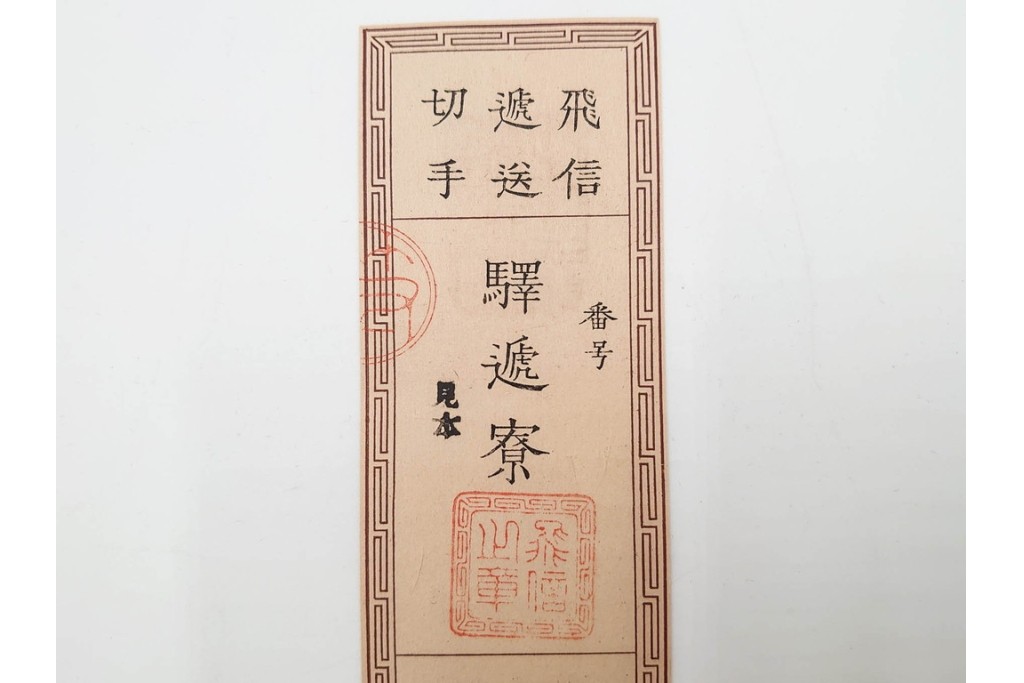 飛信
遞送
切手
番号
驛遞寮
見本
飛信
之章